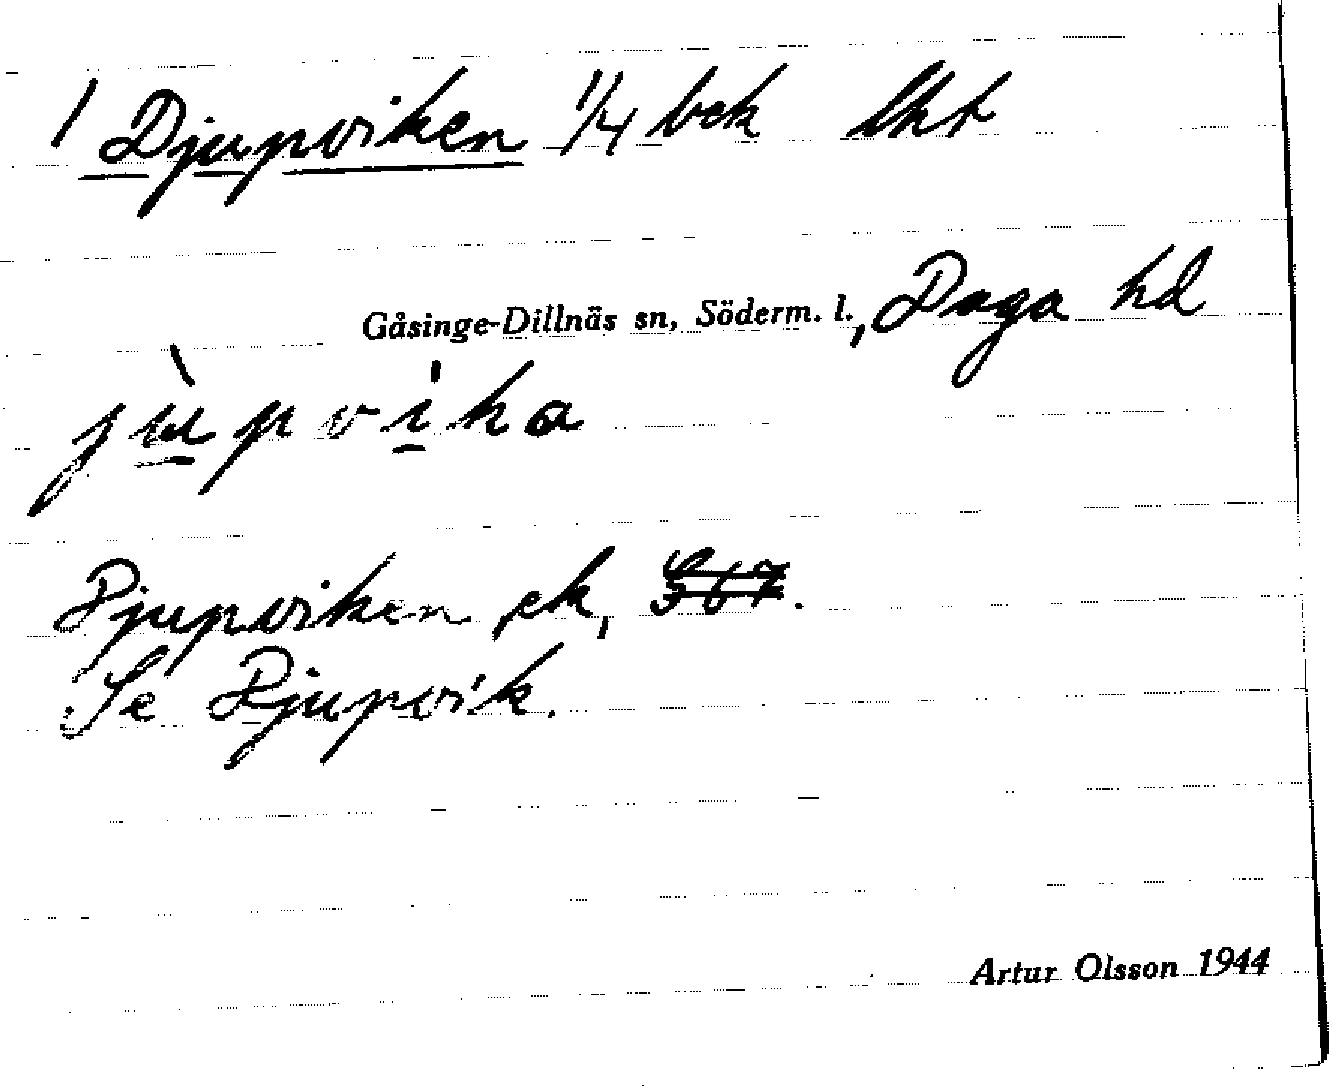 1 Djupviken 1/4 bek lht
Gåsinge-Dillnäs sn, Söderm. l., Daga hd
jùpvi̍ka
Djupviken, ek,
Se Djupvik.
Artur Olsson 1944